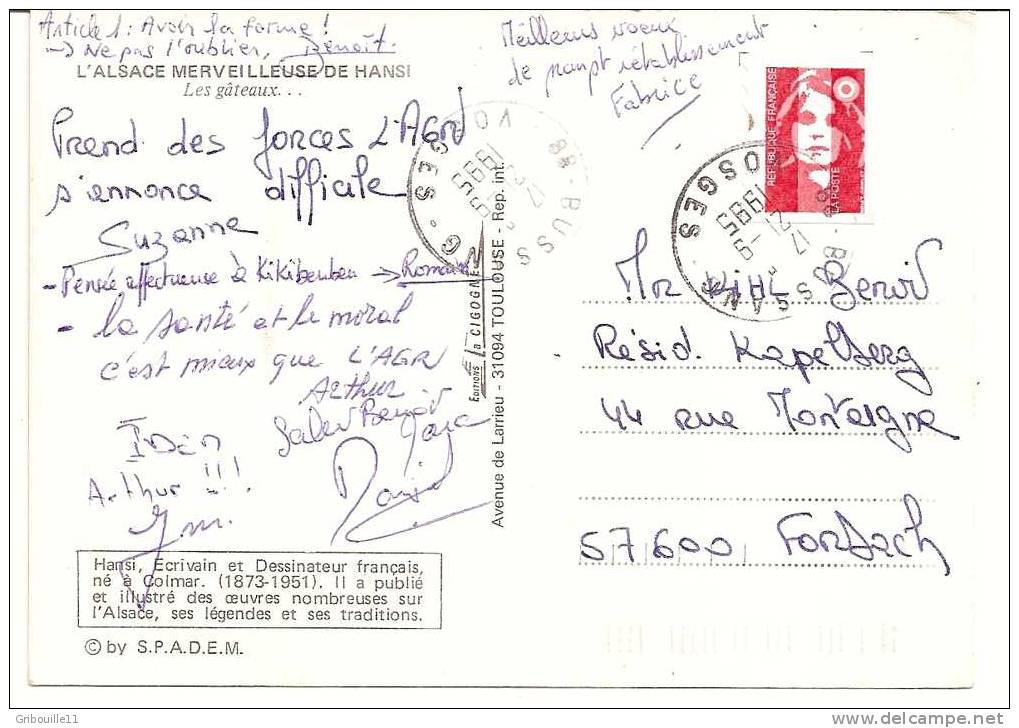 Article 1 : Avoir la forme !
→ Ne pas l'oublier, Benoît.
L'ALSACE MERVEILLEUSE DE HANSI
Les gâteaux. . .
Prend des forces L'AGR
s'annonce difficile
Suzanne
- Pensée affectueuse à Kikibenben → Romain
- la santé et le moral
c'est mieux que L'AGR
Arthur
Salut Benoît
Idem
Arthur !!!
Hansi, Ecrivain et Dessinateur français,
né à Colmar. (1873-1951). Il a publié
et illustré des œuvres nombreuses sur
l'Alsace, ses légendes et ses traditions.
© by S.P.A.D.E.M.
EDITIONS la CIGOGNE
Avenue de Larrieu - 31094 TOULOUSE - Rep. int.
Meilleurs voeux
de prompt rétablissement
Fabrice
REPUBLIQUE FRANÇAISE
LA POSTE
88 - BUSSANG - VOSGES
17 21
-9
1995
88 - BUSSANG - VOSGES
17 21
-9
1995
Mr KIHL Benoit
Résid. Kapelberg
44 rue Montaigne
57600 Forbach
Gribouille11
http://www.delcampe.net